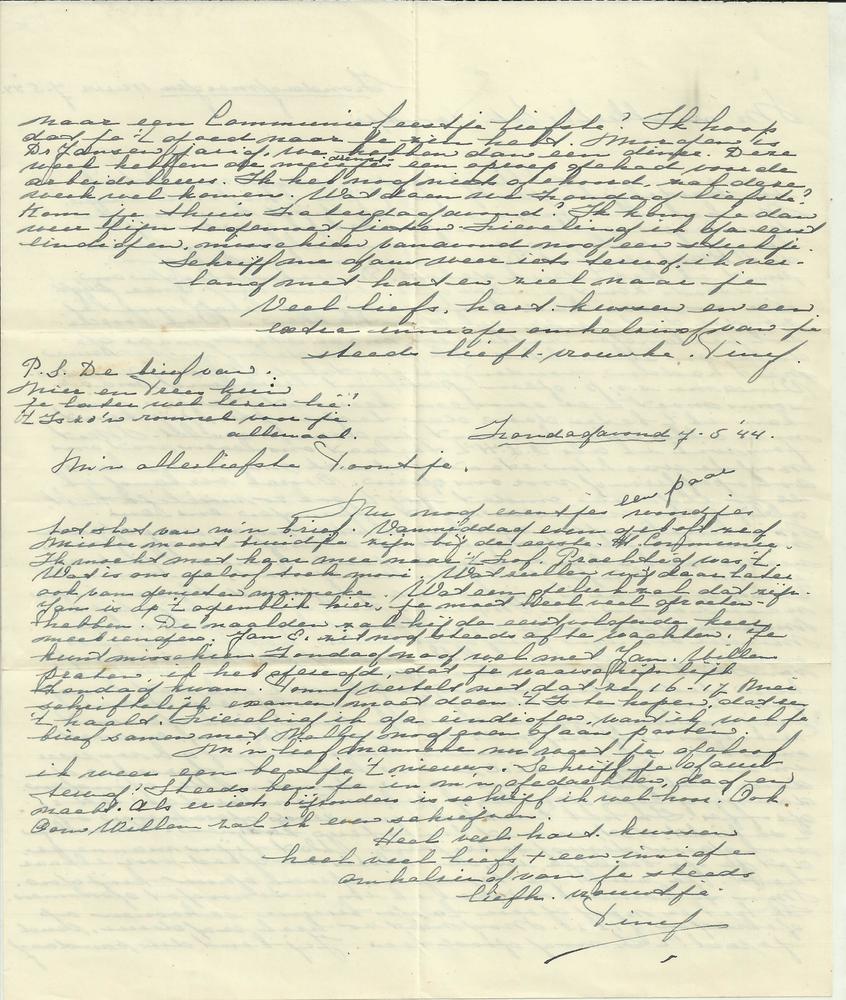 naar een Communiefeestje liefste? Ik hoop
dat je 't goed naar je zin hebt. Morgen is
Dr Jansen jarig, we hebben dan een dinge. Deze
week hebben de meisjes een oproep gehad van de dienst-
arbeidsbeurs. Ik heb nog niets gehoord, zal deze
week wel komen. Wat doen we Zondag liefste?
Kom je thuis Zaterdagavond? Ik kom je dan
weer fijn tegemoet fietsen. Lieveling ik ga eerst
eindigen, misschien vanavond nog een stukje.
Schrijf me gauw weer iets terug, ik ver-
lang met hart en ziel naar je
Veel liefs, hart. kussen en een
extra innige omhelzing van je
steeds liefh. vrouwke. Tiny.
P.S. De brief van
Mier en Trees kun
je later wel lezen hè!
't Is zo'n rommel voor je
allemaal.
Zondagavond 7-5 '44.
M'n allerliefste Toontje,
Nu nog eventjes een paar woordjes
tot slot van m'n brief. Vanmiddag even
bruidje zijn bij de eerste H. Communie.
Ik mocht met haar mee naar 't Lof. Prachtig was 't.
Wat is ons geloof toch mooi. Wat zullen wij daar later
ook van genieten manneke. Wat een geluk zal dat zijn.
Jan is op 't ogenblik hier, je moet heel veel groeten
hebben. De naalden zal hij de eerstvolgende keer
meebrengen. Jan E. zit nog steeds af te wachten. Je
kunt misschien Zondag nog wel met Jan. Willen
praten, ik heb gezegd, dat je waarschijnlijk
Zondag kwam. Tonny vertelt net dat ze 16-17 Mei
schriftelijk examen moet doen. 't Is te hopen, dat ze
't haalt. Lieveling ik ga eindigen, want ik wil je
brief samen met Nelly nog gaan posten.
M'n lief manneke nu weet je geloof
ik weer een beetje 't nieuws. Schrijf je gauw
terug? Steeds ben je in m'n gedachten, dag en
nacht. Als er iets bijzonders is schrijf ik wel hoor. Ook
Oom Willem zal ik even schrijven.
Heel veel hart. kussen
heel veel liefs + een innige
omhelzing van je steeds
liefh. vrouwtje
Tiny